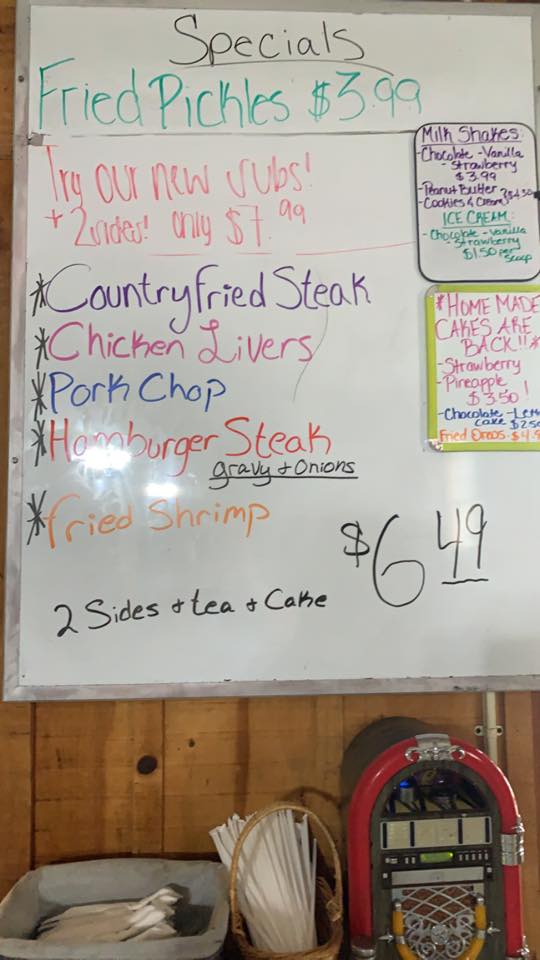 Specials
Fried Pickles $3.99
Try our new subs!
+ 2 sides! only $7.99
*Country Fried Steak
*Chicken Livers
*Pork Chop
*Hamburger Steak
gravy + Onions
*fried Shrimp
$6.49
2 Sides + tea + Cake
Milk Shakes:
-Chocolate -Vanilla
-Strawberry
$3.99
-Peanut Butter
-Cookies & Cream
ICE CREAM:
-Chocolate -Vanilla
-Strawberry
$1.50 per
scoop
*HOME MADE
CAKES ARE
BACK!!*
-Strawberry
-Pineapple
$3.50!
-Chocolate
Cake $2.50
Fried Oreos -